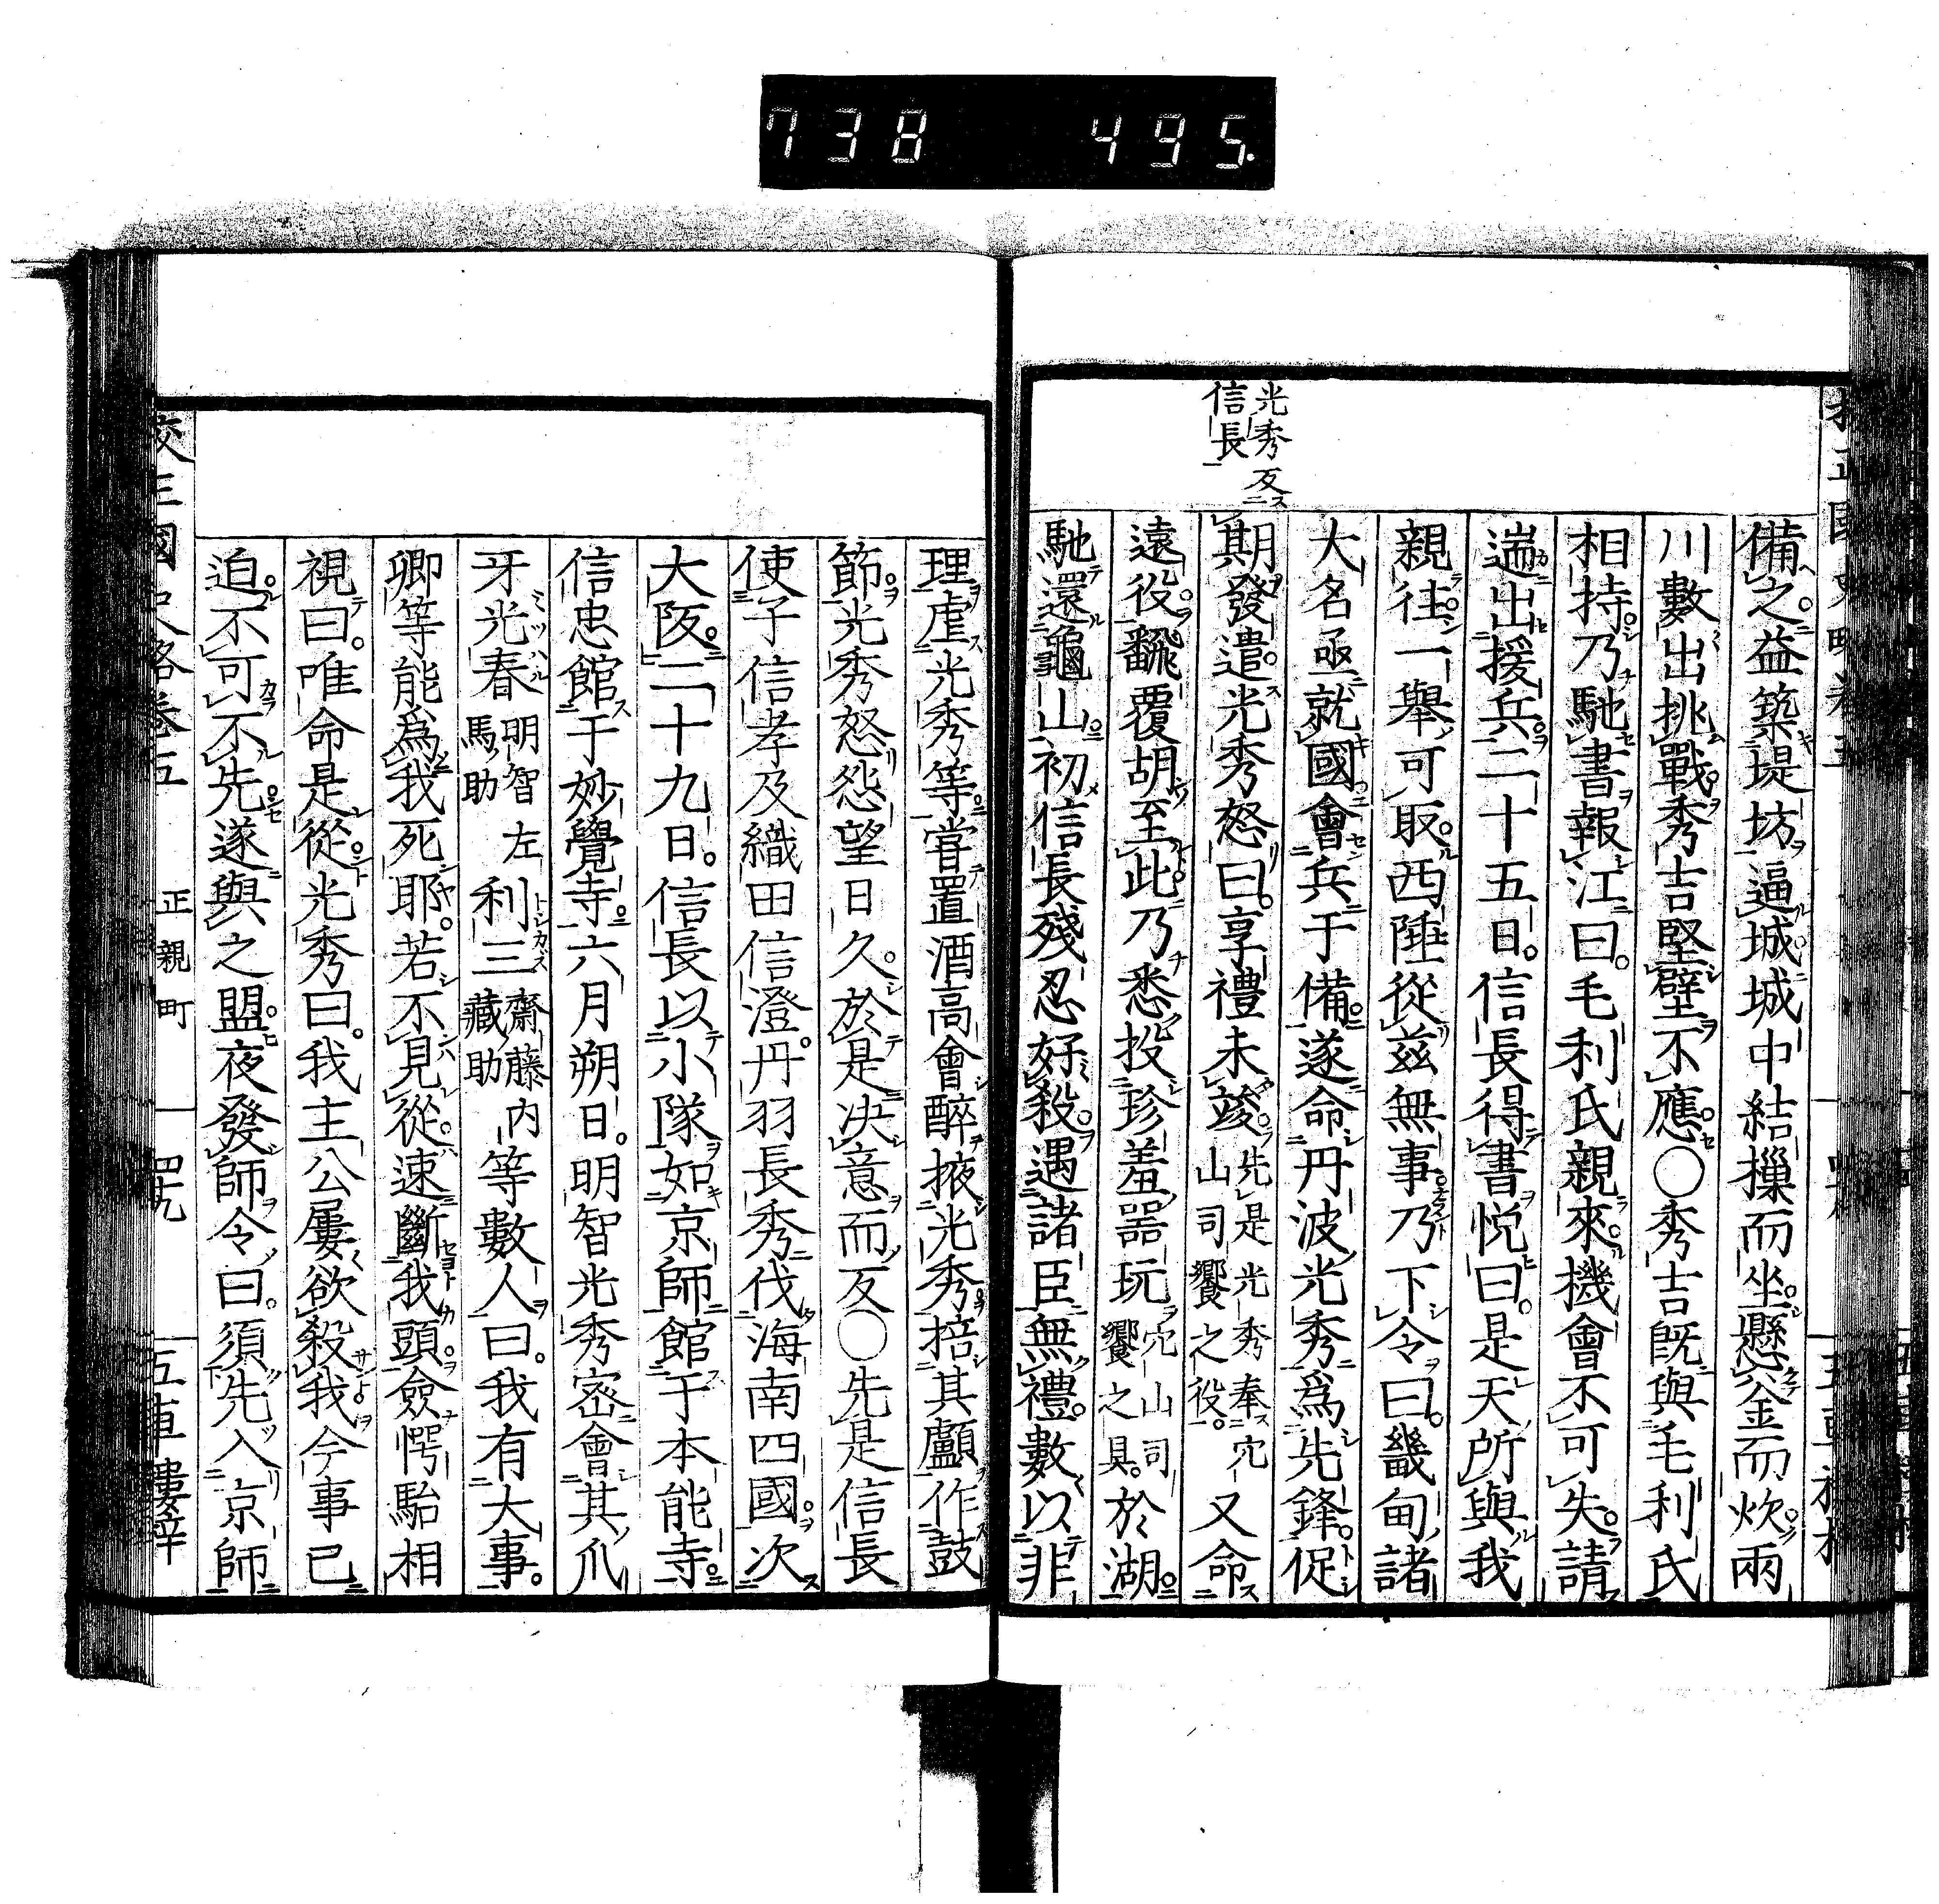 738 495.
光秀反
信長
備之益築堤坊逼城城中結摷而坐懸釜而炊兩
川數出挑戰秀吉堅壁不應〇秀吉既與毛利氏
相持乃馳書報江曰毛利氏親來機會不可失請
遄出援兵二十五日信長得書悦曰是天所與我
親往一舉可取西陲從兹無事乃下令曰畿甸諸
大名亟就國會兵于備遂命丹波光秀爲先鋒促
期發遣光秀怒曰享禮未竣先是光秀奉宂山司饗之役又命
遠役飜覆胡至此乃悉投珍羞器玩宂山司饗之具於湖
馳還龜山初信長殘忍好殺遇諸臣無禮數以非
理虐光秀等嘗置酒高會醉掖光秀掊其顱作鼓
節光秀怒怨望日久於是决意而反〇先是信長
使子信孝及織田信澄丹羽長秀伐海南四國次
大阪二十九日信長以小隊如京師館于本能寺
信忠館于妙覺寺六月朔日明智光秀密會其爪
牙光春明智左馬助利三齋藤内藏助等數人曰我有大事
卿等能爲我死耶若不見從速斷我頭僉愕駘相
視曰唯命是從光秀曰我主公屢欲殺我今事已
迫不可不先遂與之盟夜發師令曰須先入京師
正親町 四十九